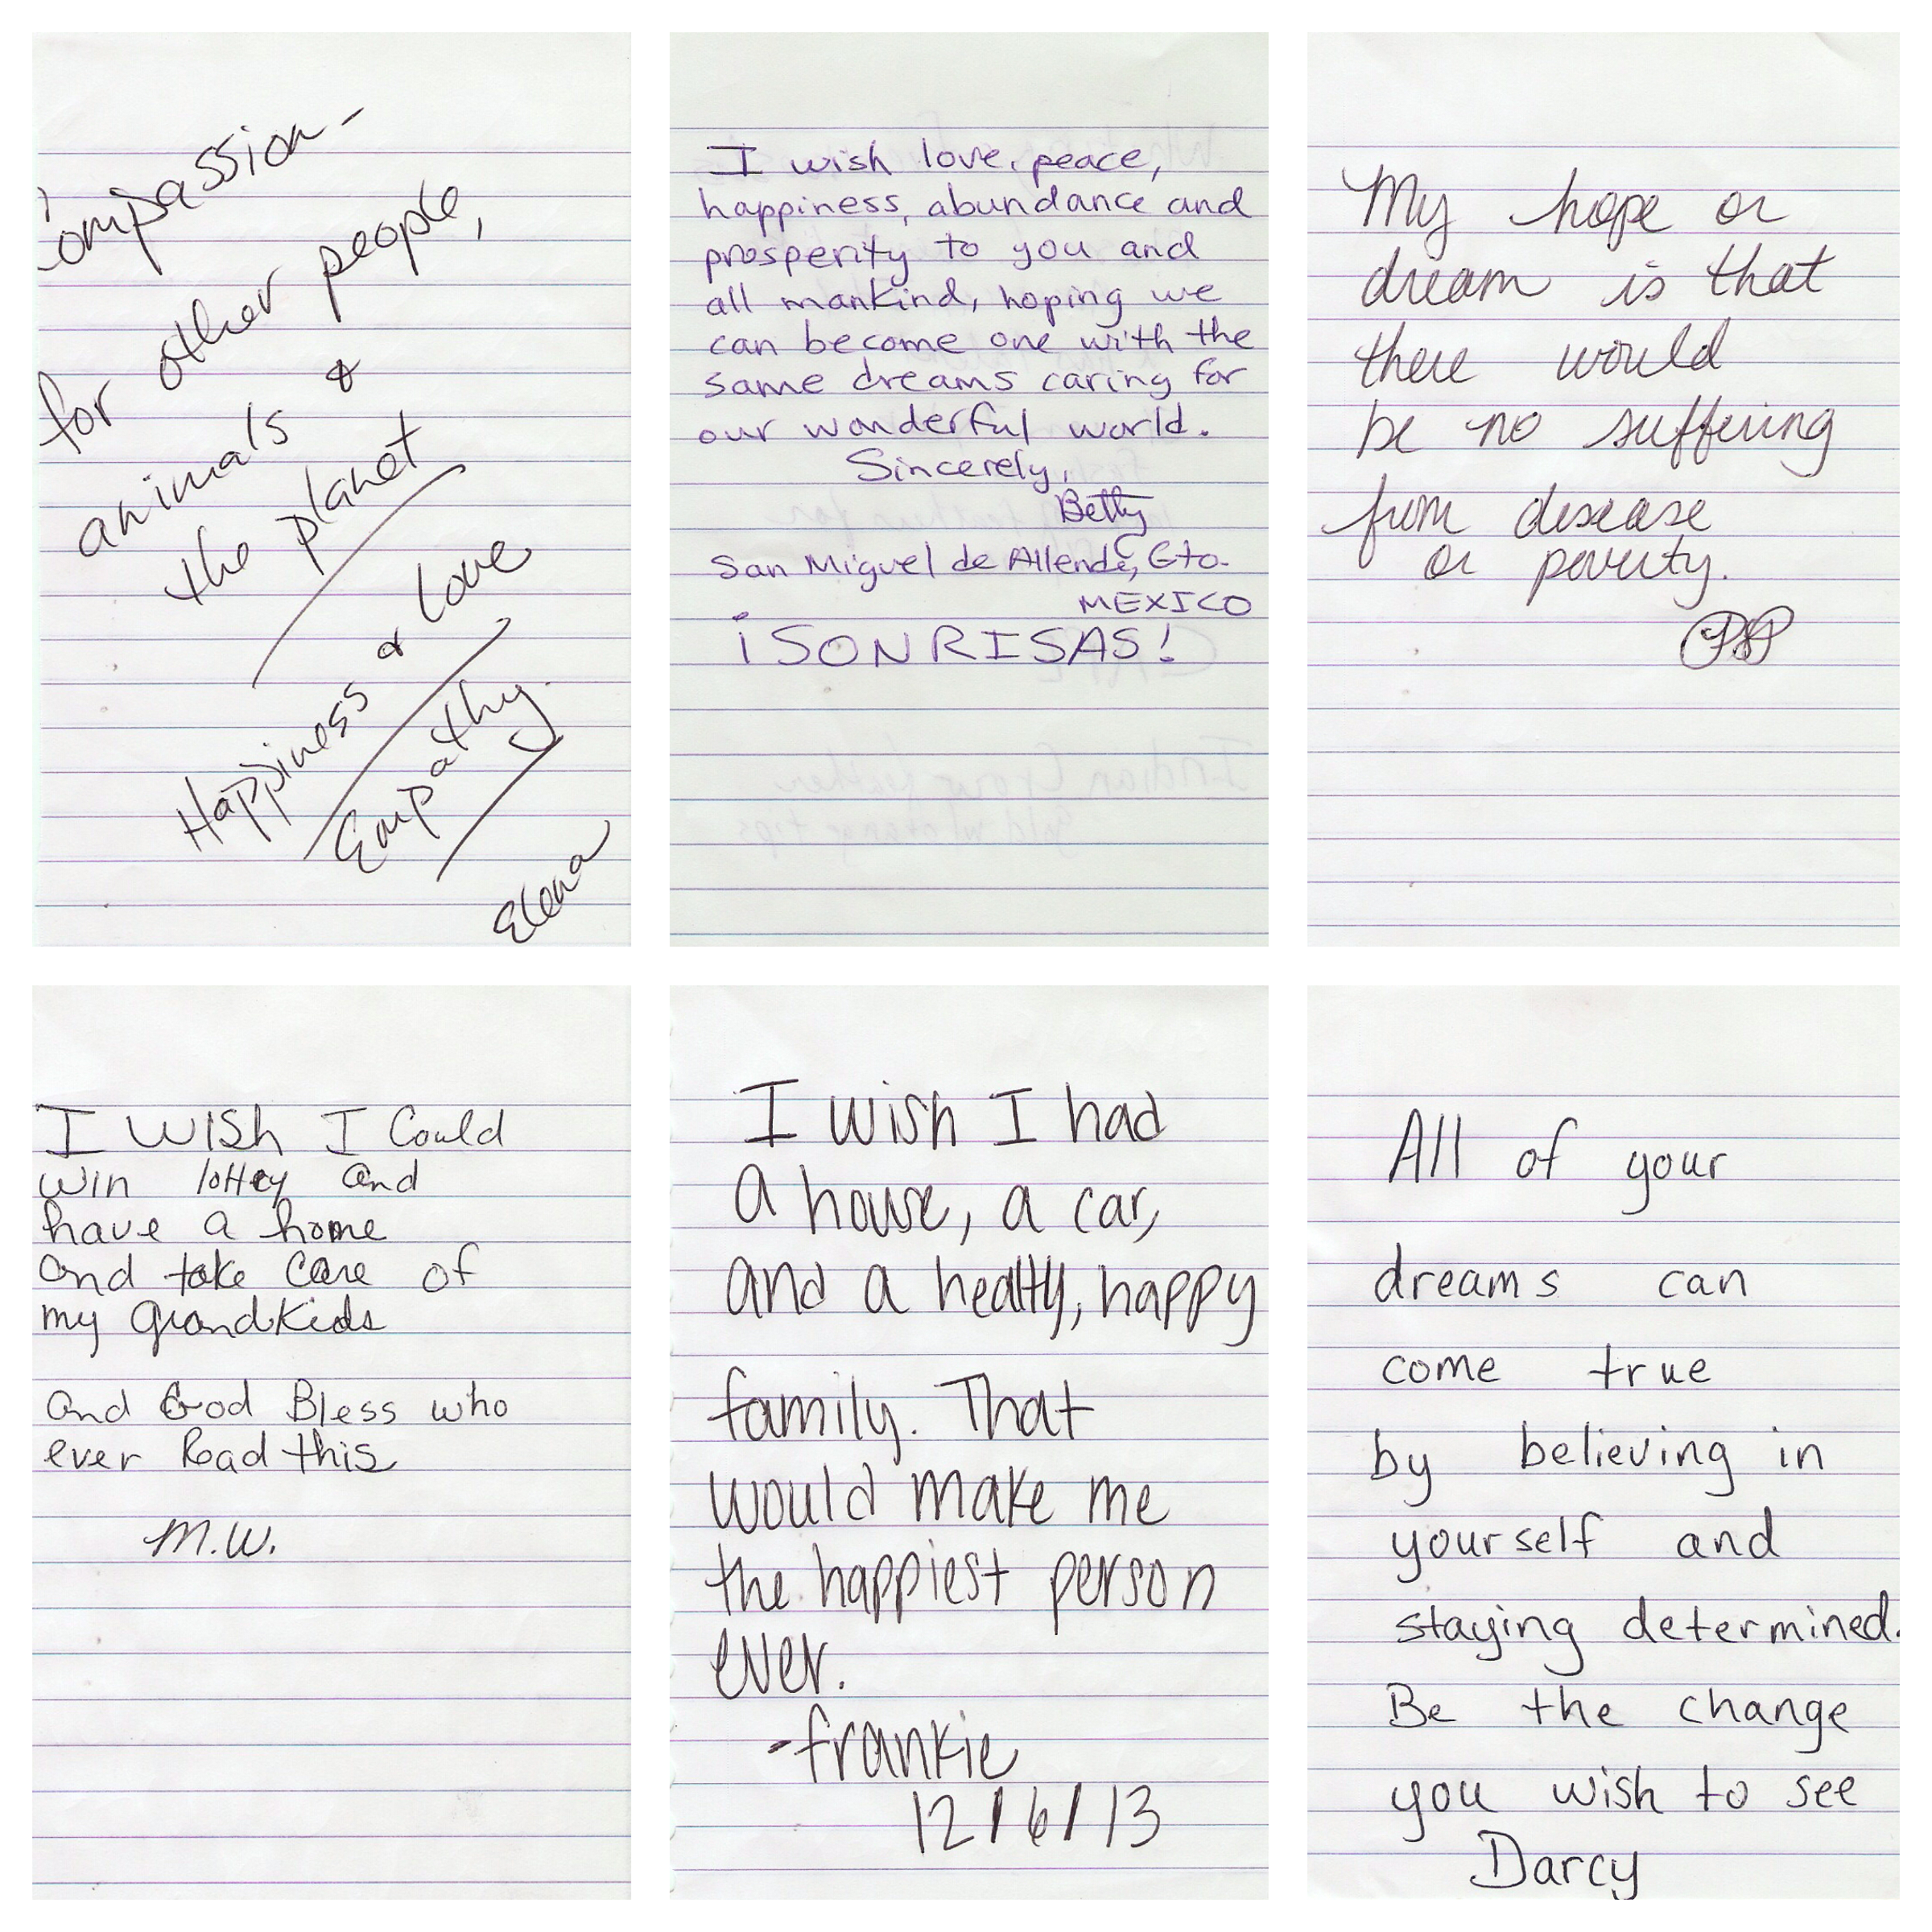 Compassion -
for other people,
animals &
the planet
Happiness & Love
Empathy.
Elena
I wish love, peace,
happiness, abundance and
prosperity to you and
all mankind, hoping we
can become one with the
same dreams caring for
our wonderful world.
Sincerely,
Betty
San Miguel de Allende, Gto.
MEXICO
¡SONRISAS!
My hope or
dream is that
there would
be no suffering
from disease
or poverty.
I WISh I Could
win lottey and
have a home
and take care of
my grandkids
and God Bless who
ever Read this
M.W.
I wish I had
a house, a car,
and a healthy, happy
family. That
would make me
the happiest person
ever.
-frankie
12/6/13
All of your
dreams can
come true
by believing in
yourself and
staying determined.
Be the change
you wish to see
Darcy